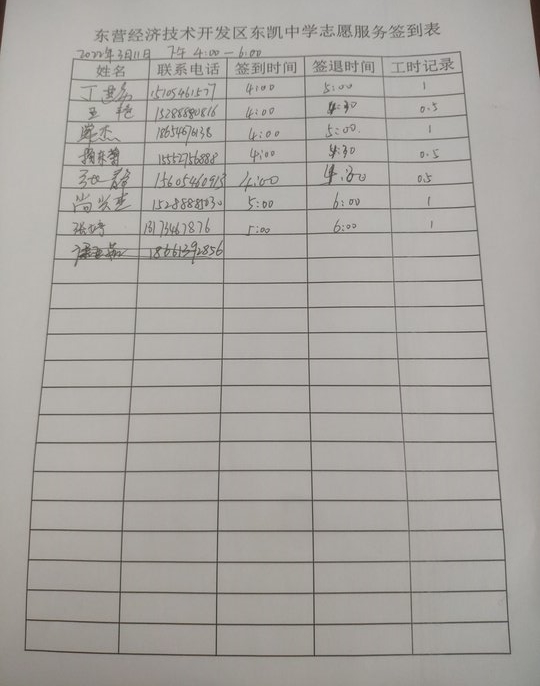 东营经济技术开发区东凯中学志愿服务签到表
2022年3月11日 下午 4:00—6:00
姓名 联系电话 签到时间 签退时间 工时记录
15105461577 4:00 5:00 1
王艳 15288880816 4:00 4:30 0.5
杰 4:00 5:00 1
15552756888 4:00 4:30 0.5
张静 15605460913 4:00 4:30 0.5
尚兴 5:00 6:00 1
张婷 13173467876 5:00 6:00 1
18661392856